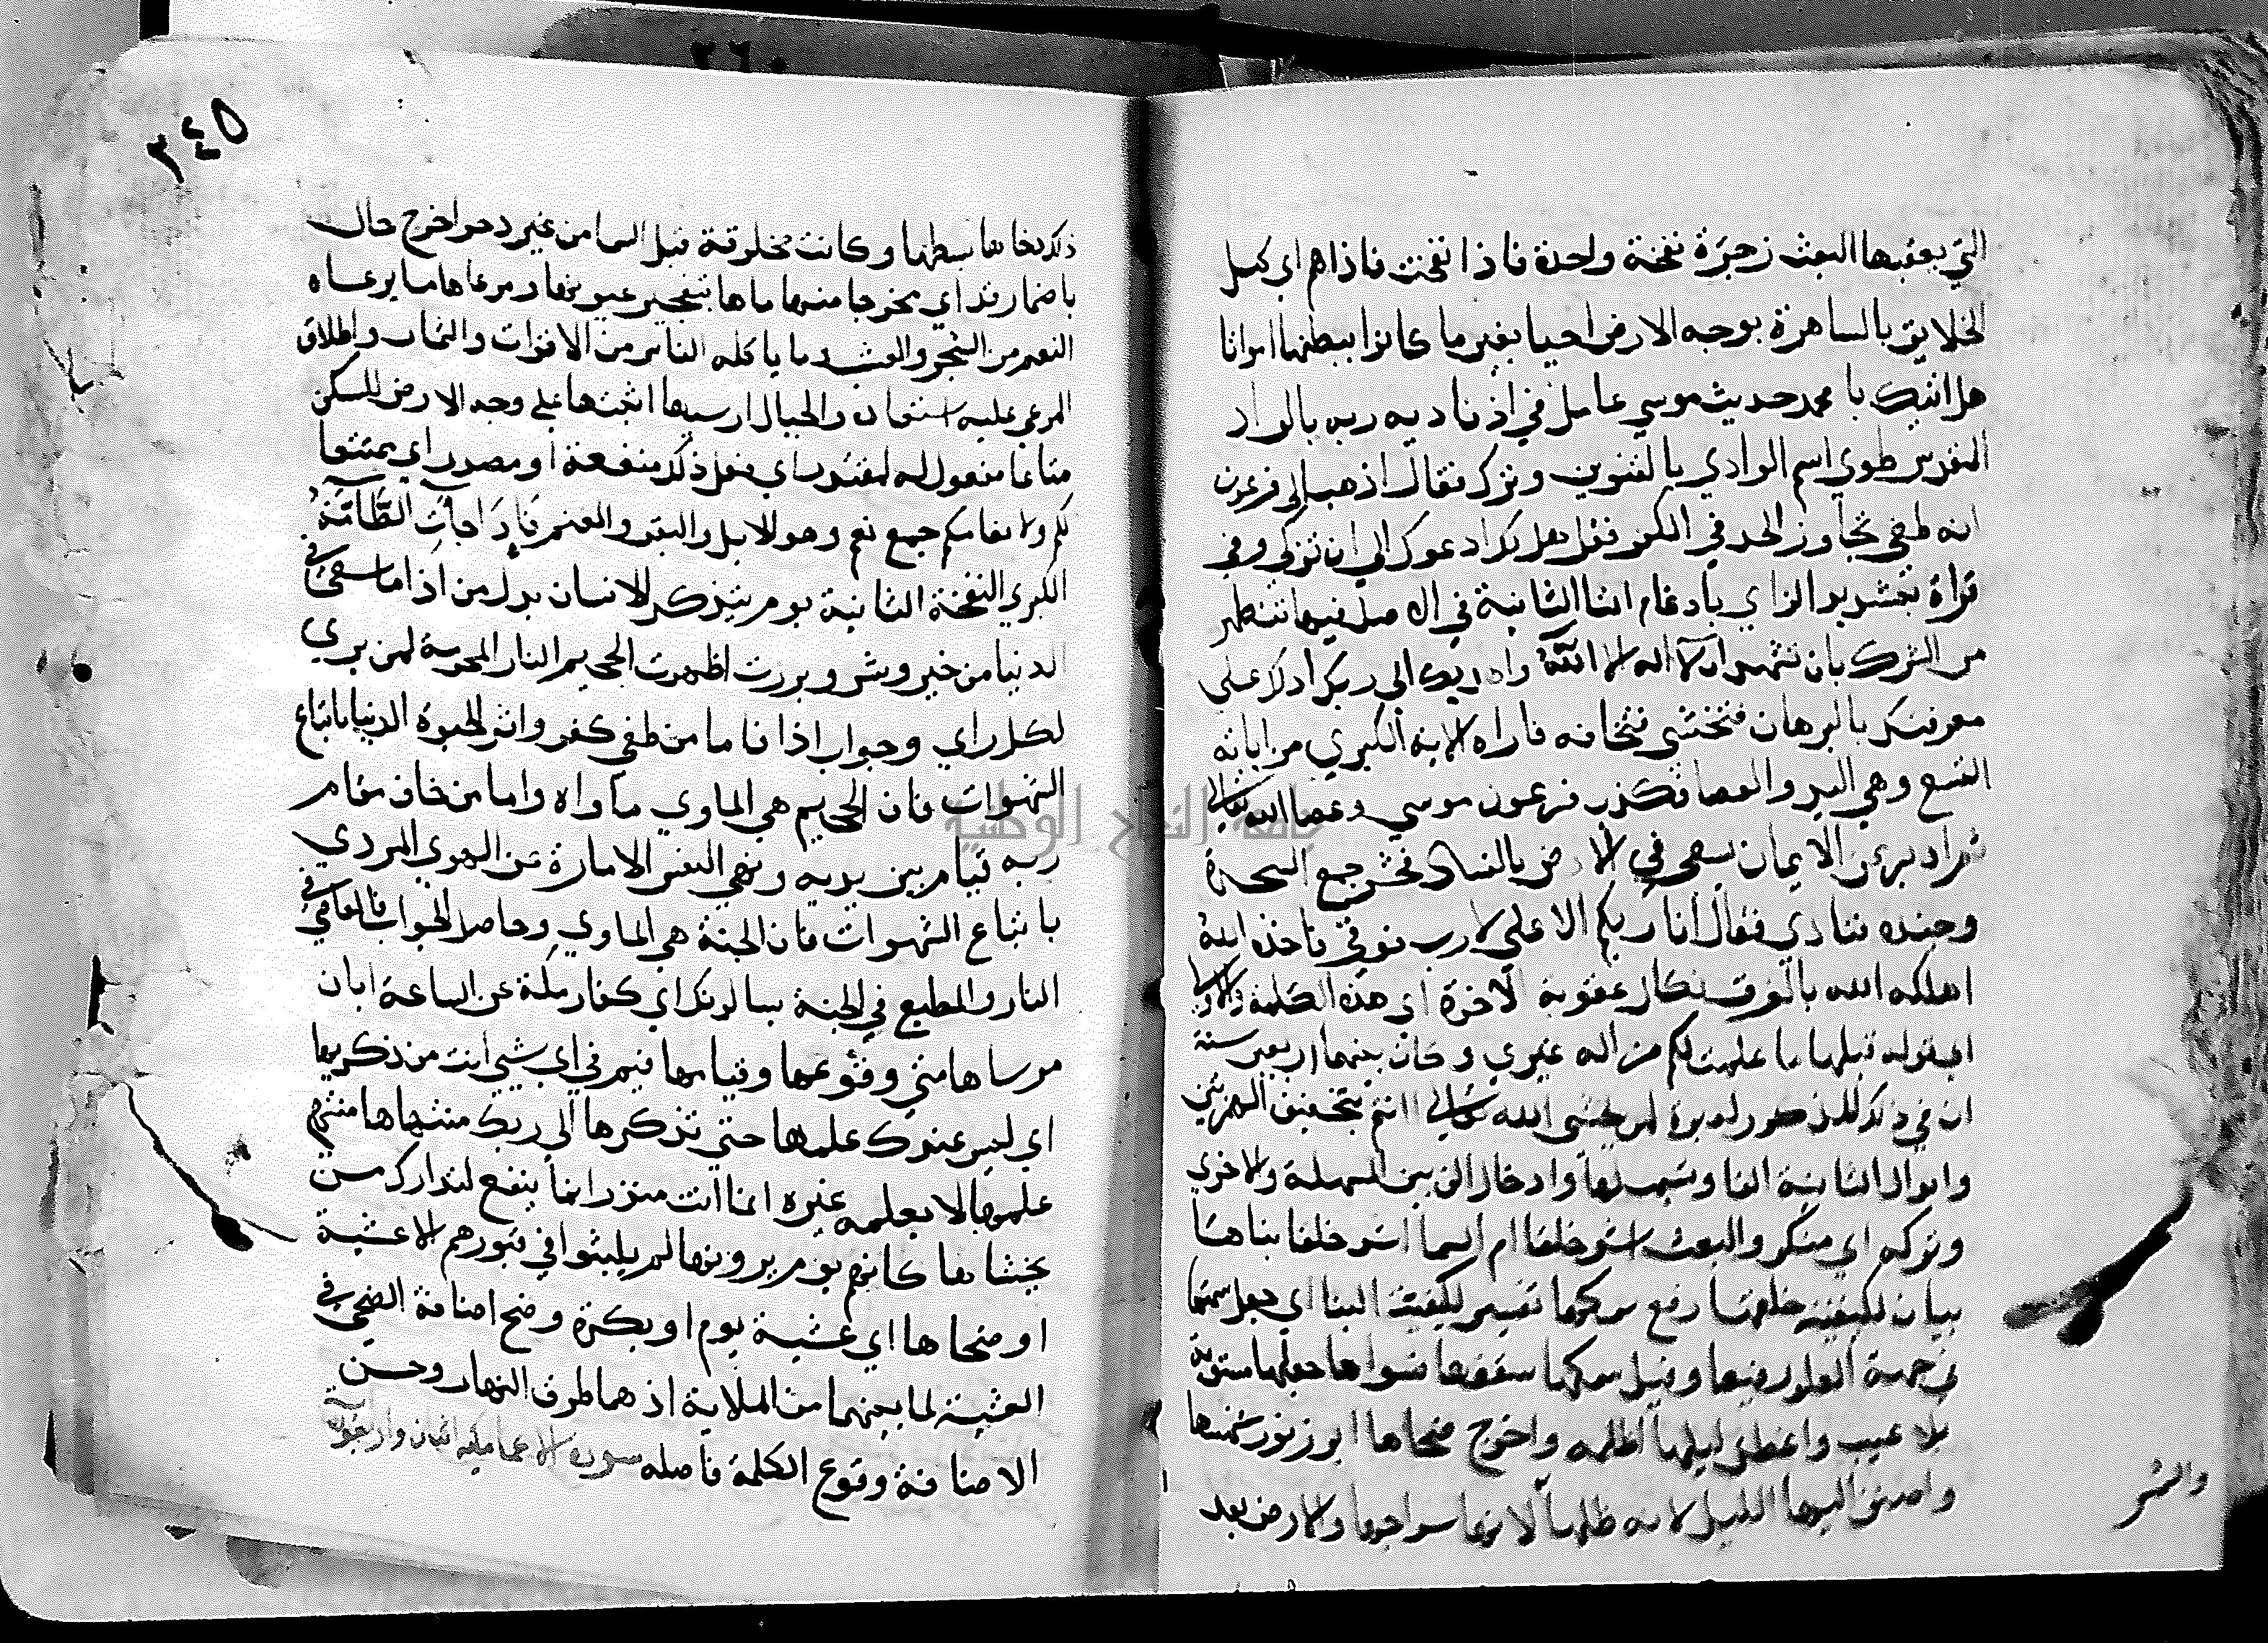 التي يعقبها البعث زجرة نفخة واحدة فاذا نفخت فاذا هم اي كل
الخلايق بالساهرة بوجه الارض احيا بعد ما كانوا ببطنها امواتا
هل اتيك يا محمد حديث موسي عامل في اذ ناديه ربه بالواد
المقدس طوي اسم الوادي بالتنوين وتركه فقال اذهب الي فرعون
انه طغي تجاوز الحد في الكفر فقل هل لك ادعوك الي ان تزكي وفي
قراة بتشديد الزاي بادغام التا الثانية في الاصل فيها تتطهر
من الشرك بان تشهد ان لا اله الا الله واهديك الي ربك ادلك علي
معرفته بالبرهان فتخشي فتخافه فاراه الاية الكبري من اياته
التسع وهي اليد والعصا فكذب فرعون موسي وعصا الله تعالي
ثم ادبر عن الايمان يسعي في الارض بالفساد فحشر جمع السحرة
وجنده فنادي فقال انا ربكم الاعلي لا رب فوقي فاخذه الله
اهلكه الله بالغرق نكال عقوبة الاخرة اي هذه الكلمة والاولي
اي قوله قبلها ما علمت لكم من اله غيري وكان بينهما اربعين سنة
ان في ذلك المذكور لعبرة لمن يخشي الله تعالي اانتم بتحقيق الهمزتين
وابدال الثانية الفا وتسهيلها وادخال الف بين المسهلة والاخري
وتركه اي منكر والبعث اشد خلقا ام السما اشد خلقا بناها
بيان لكيفية خلقها رفع سمكها تفسير لكيفية البنا اي جعل سمتها
في جهة العلو رفيعا وقيل سمكها سقفها فسواها جعلها مستوية
بلا عيب واغطش ليلها اظلمه واخرج ضحاها ابرز نور شمسها
واضيف اليها الليل لانه ظلها لانها سراجها والارض بعد
والشمس
٢٤٥
ذلك دحاها بسطها وكانت مخلوقة قبل السما من غير دحو اخرج حال
باضمار قد اي مخرجا منها ماها بتفجير عيونها ومرعاها ما يرعاه
النعم من الشجر والعشب وما ياكله الناس من الاقوات والثمار واطلاق
المرعي عليه استعارة والجبال ارسيها اثبتها علي وجه الارض لتسكن
متاعا مفعول له لمقدر اي فعل ذلك منفعة او مصدر اي تمتيعا
لكم ولانعامكم جمع نعم وهو للابل والبقر والغنم فَاِذَا جآءَتِ الطَّآمَّةُ
الكبري النفخة الثانية يوم يتذكر الانسان بدل من اذا ما سعي في
الدنيا من خير وشر وبرزت اظهرت الجحيم النار المحرقة لمن يري
لكل راي وجواب اذا فاما من طغي كفر واثر الحيوة الدنيا باتباع
الشهوات فان الجحيم هي الماوي ماواه واما من خاف مقام
ربه قيامه بين يديه ونهي النفس الامارة عن الهوي المردي
باتباع الشهوات فان الجنة هي الماوي وحاصل الجواب فالعاصي في
النار والمطيع في الجنة يسالونك اي كفار مكة عن الساعة ايان
مرساها متي وقوعها وقيامها فيم في اي شي انت من ذكريها
اي ليس عندك علمها حتي تذكرها الي ربك منتهاها منتهي
علمها لا يعلمه غيره انما انت منذر انما ينفع انذارك من
يخشاها كانهم يوم يرونها لم يلبثوا في قبورهم الا عشية
او ضحاها اي عشية يوم او بكرة وضح اضافة الضحي في
العشية لما بينهما من الملابسة اذ هما طرف النهار وحسن
الاضافة وقوع الكلمة فاصله سورة الاعما مكية اثنان واربعون آية
جامعة النجاح الوطنية